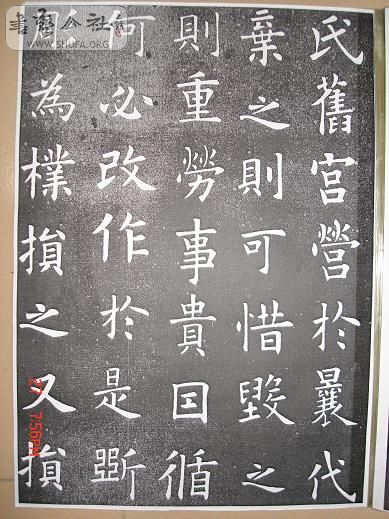 氏舊宮營於曩代
棄之則可惜毀之
則重勞事貴囙循
何必改作於是斲
為樸損之又損
WWW.SHUFA.ORG
7:56PM